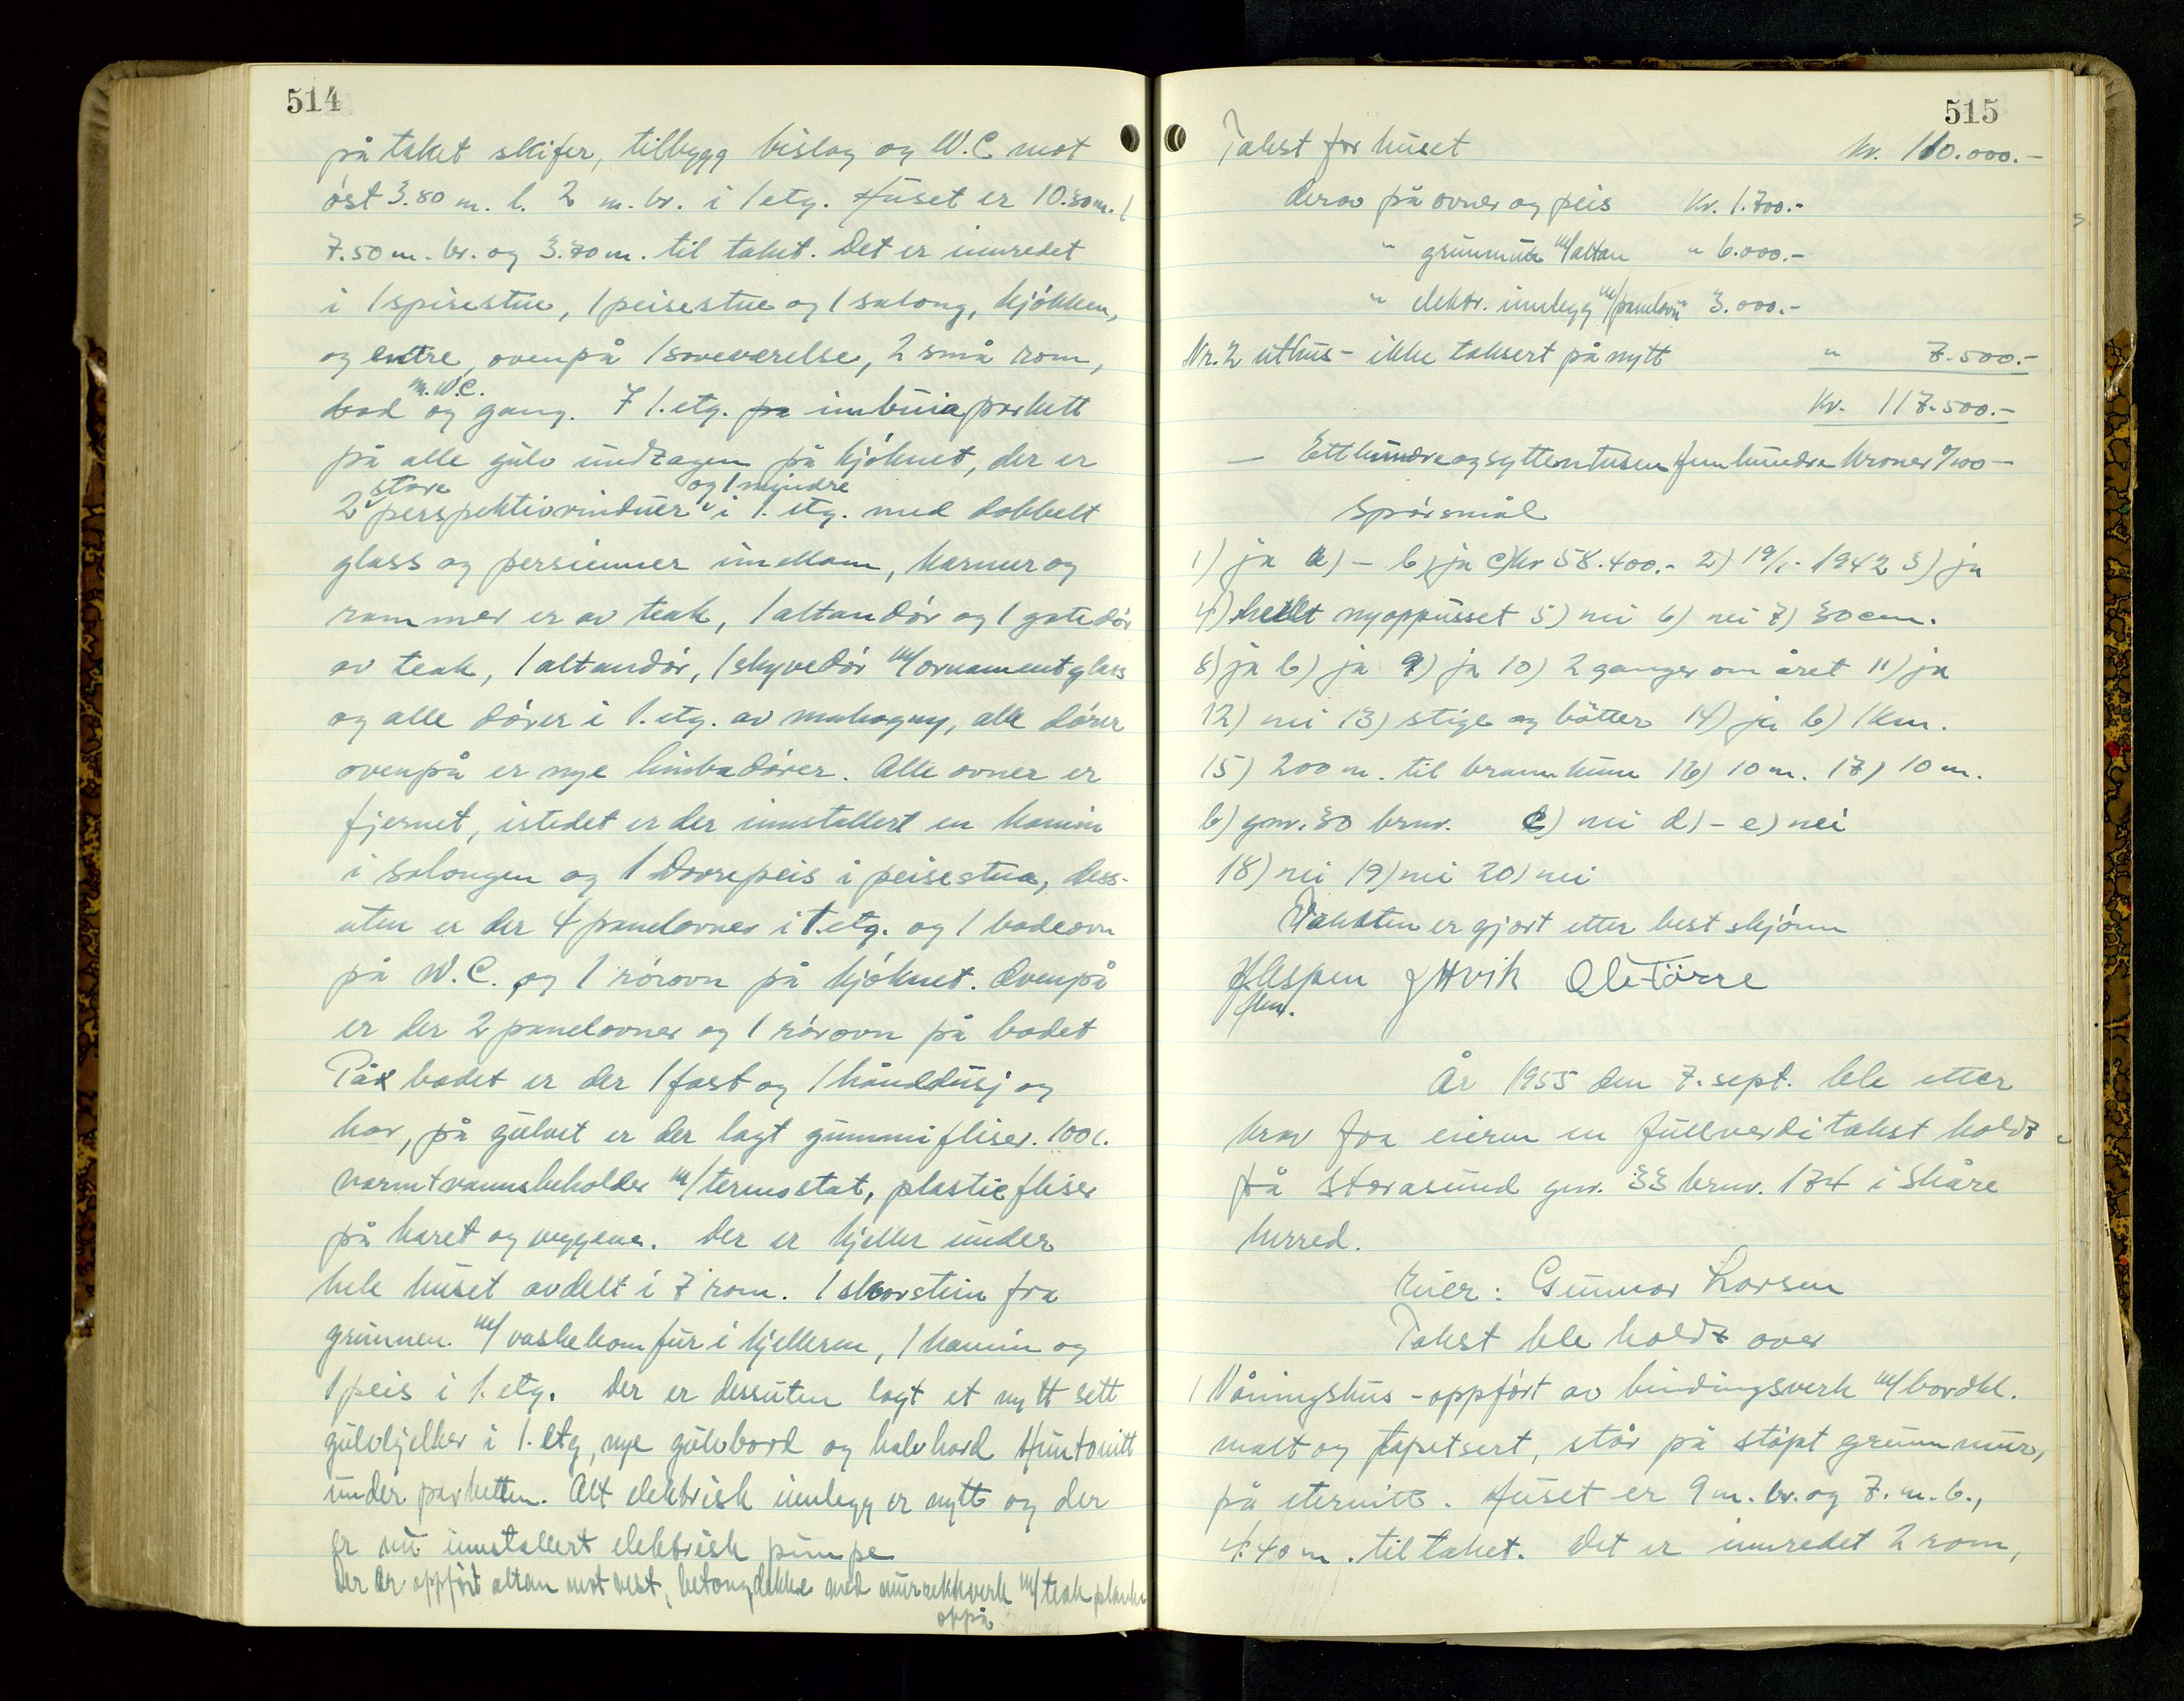 514
på taket skifer, tilbygg bislag og W.C. mot
øst 3.80 m. l. 2 m. br. i 1 etg. Huset er 10.30 m. l
7.50 m. br. og 3.70 m. til taket. Det er innredet
i 1 spisestue, 1 peisestue og 1 salong, kjøkken,
og entre, ovenpå 1 soveværelse, 2 små rom,
m. W.C.
bad og gang. I 1. etg. imbuia parkett
på alle gulv undtagen på kjøknet, der er
store og 1 mindre
2 perspektivvinduer i 1. etg. med dobbelt
glass og persienner imellom, karmer og
rammer er av teak, 1 altandør og 1 gatedør
av teak, 1 altandør, 1 skyvedør m/ornamentglass
og alle dører i 1. etg. av mahogny, alle dører
ovenpå er nye limbadører. Alle ovner er
fjernet, istedet er der innstallert en kamin
i salongen og 1 Dovrepeis i peisestua, dess-
uten er der 4 panelovner i 1. etg. og 1 badeovn
på W.C. og 1 rørovn på kjøknet. Ovenpå
er der 2 panelovner og 1 rørovn på badet
På badet er der 1 fast og 1 hånddusj og
kar, på gulvet er der lagt gummifliser. 100 l.
varmtvannsbeholder m/termostat, plasticfliser
på karet og veggene. Der er kjeller under
hele huset avdelt i 7 rom. 1 skorstein fra
grunnen. m/vaskekomfur i kjelleren, 1 kamin og
1 peis i 1. etg. Der er dessuten lagt et nytt sett
gulvbjelker i 1. etg, nye gulvbord og halvhard Huntonitt
under parketten. Alt elektrisk innlegg er nytt og der
er nu innstallert elektrisk pumpe
Der er oppført altan mot vest, betongdekke med murrekkverk m/teak planke
oppå
515
Takst for huset kr. 110.000.-
derav på ovner og peis Kr. 1.700.-
" grunnmur m/altan " 6.000.-
" elektr. innlegg m/panelovn " 3.000.-
Nr. 2 uthus - ikke taksert på nytt " 7.500.-
Kr. 117.500.-
- Etthundreogsyttentusenfemhundre kroner 0/100 -
Spørsmål
1) ja a) - b) ja c) kr 58.400.- 2) 19/1- 1942 3) ja
4) heilt nyoppusset 5) nei 6) nei 7) 30 cm.
8) ja b) ja 9) ja 10) 2 ganger om året 11) ja
12) nei 13) stige og bøtter 14) ja b) 1 km.
15) 200 m. til brannkum 16) 10 m. 17) 10 m.
b) gnr. 30 brnr. c) nei d) - e) nei
18) nei 19) nei 20) nei
Taksten er gjort etter best skjønn
Aspen J Hvik Ole Førre
År 1955 den 7. sept. ble etter
krav fra eieren en fullverditakst holdt
på Storasund gnr. 33 brnr. 174 i Skåre
herred.
Eier: Gunnar Larsen
Takst ble holdt over
1 Våningshus - oppført av bindingsverk m/bordkl.
malt og tapetsert, står på støpt grunnmur,
på eternitt. Huset er 9 m. br. og 7. m. b.,
4.40 m. til taket. Det er innredet 2 rom,